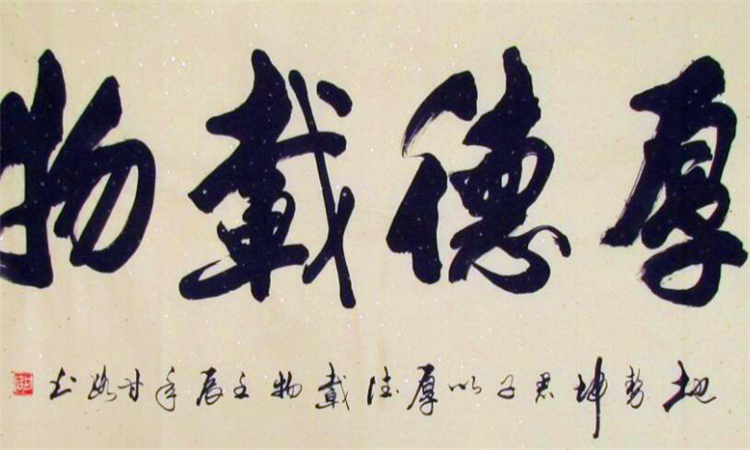 厚德載物
地勢坤君子以厚德載物壬辰年甘路书